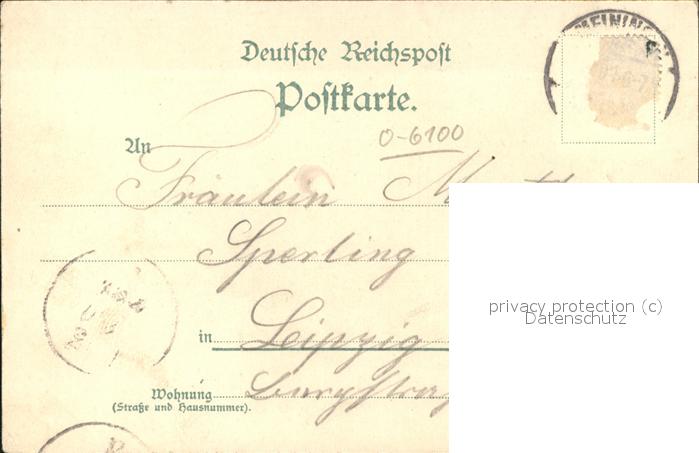 MEININGEN
Deutsche Reichspost
Postkarte.
O-6100
An
Fräulein
Sperling
in Leipzig
Wohnung
(Straße und Hausnummer).
privacy protection (c)
Datenschutz